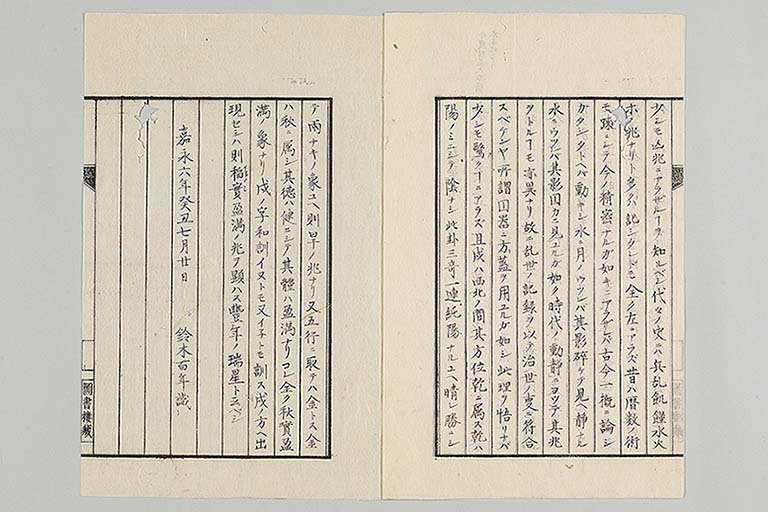 少シモ凶兆ニアラザルヿヲ知ルベシ代々ノ史ハ其乱飢饉水火
ホノ兆ナリト多クハ記シタレドモ全ク左ニアラズ昔ハ暦数ノ術
モ踈ニシテ今ノ精密ナルガ如キニアラザレバ古今一概ニ論シ
ガタシタトヘバ動キシ水ニ月ノウツレバ其影碎ケテ見ヘ静ナル
水ニウツレバ其影円カニ見ユルガ如ク時代ノ動静ニヨツテ其兆
クトルヿモ亦異ナリ故ニ乱世ノ記録ヲ以テ治世ハ更ニ符合
スベケンヤ所謂円器ニ方蓋ヲ用ユルガ如シ此理ヲ悟リナバ
少シモ驚クヿニアラズ且戌ハ西北ノ間其方位乾ニ属ス乾ハ
陽ノミニシテ陰ナシ此卦三竒一連純陽ナルユヘ晴レ勝ニシ
テ雨ナキノ象ユヘ則旱ノ兆ナリ又五行ニ取テハ金トス金
ハ秋ニ属シ其徳ハ健ニシテ其體ハ盈満ナリコレ全ク秋實盈
満ノ象ナリ戌ノ字和訓イヌトモ又イネトモ訓ス戌ノ方ヘ出
現セシハ則稲實盈満ノ兆ヲ顕ハス豐年ノ瑞星ト云ベシ
嘉永六年癸丑七月廿日
鈴木百年識
圖書樓藏